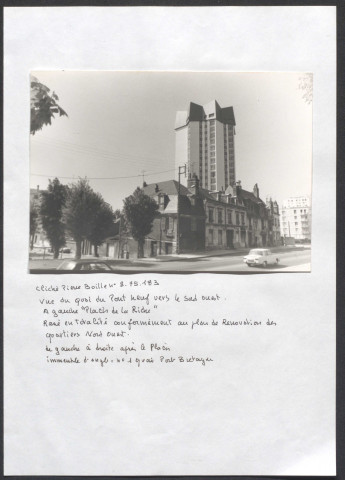 Cliché Pierre Boille n° 2.75.183
Vue du quai du Pont Neuf vers le sud ouest.
A gauche "Placis de la Riche"
Rasé en totalité conformément au plan de Renovation des
quartiers Nord Ouest.
de gauche à droite après le Placis
immeuble d'angle. n° 1 quai Port Bretagne